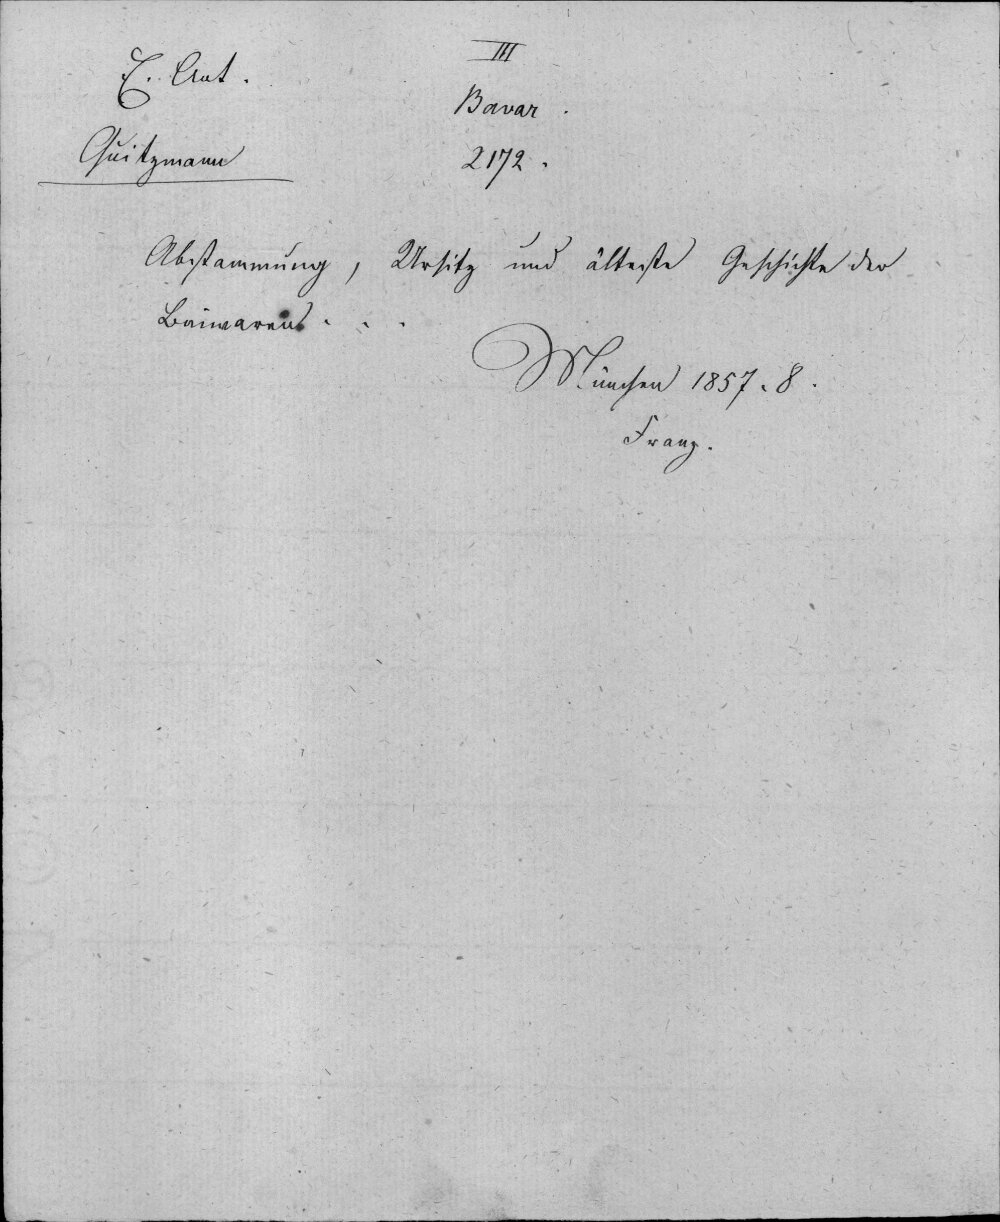 E. Ant.
III
Bavar.
Quitzmann
2172.
Abstammung, Ursitz und älteste Geschichte der
Baiwaren . . .
München 1857. 8.
Franz.